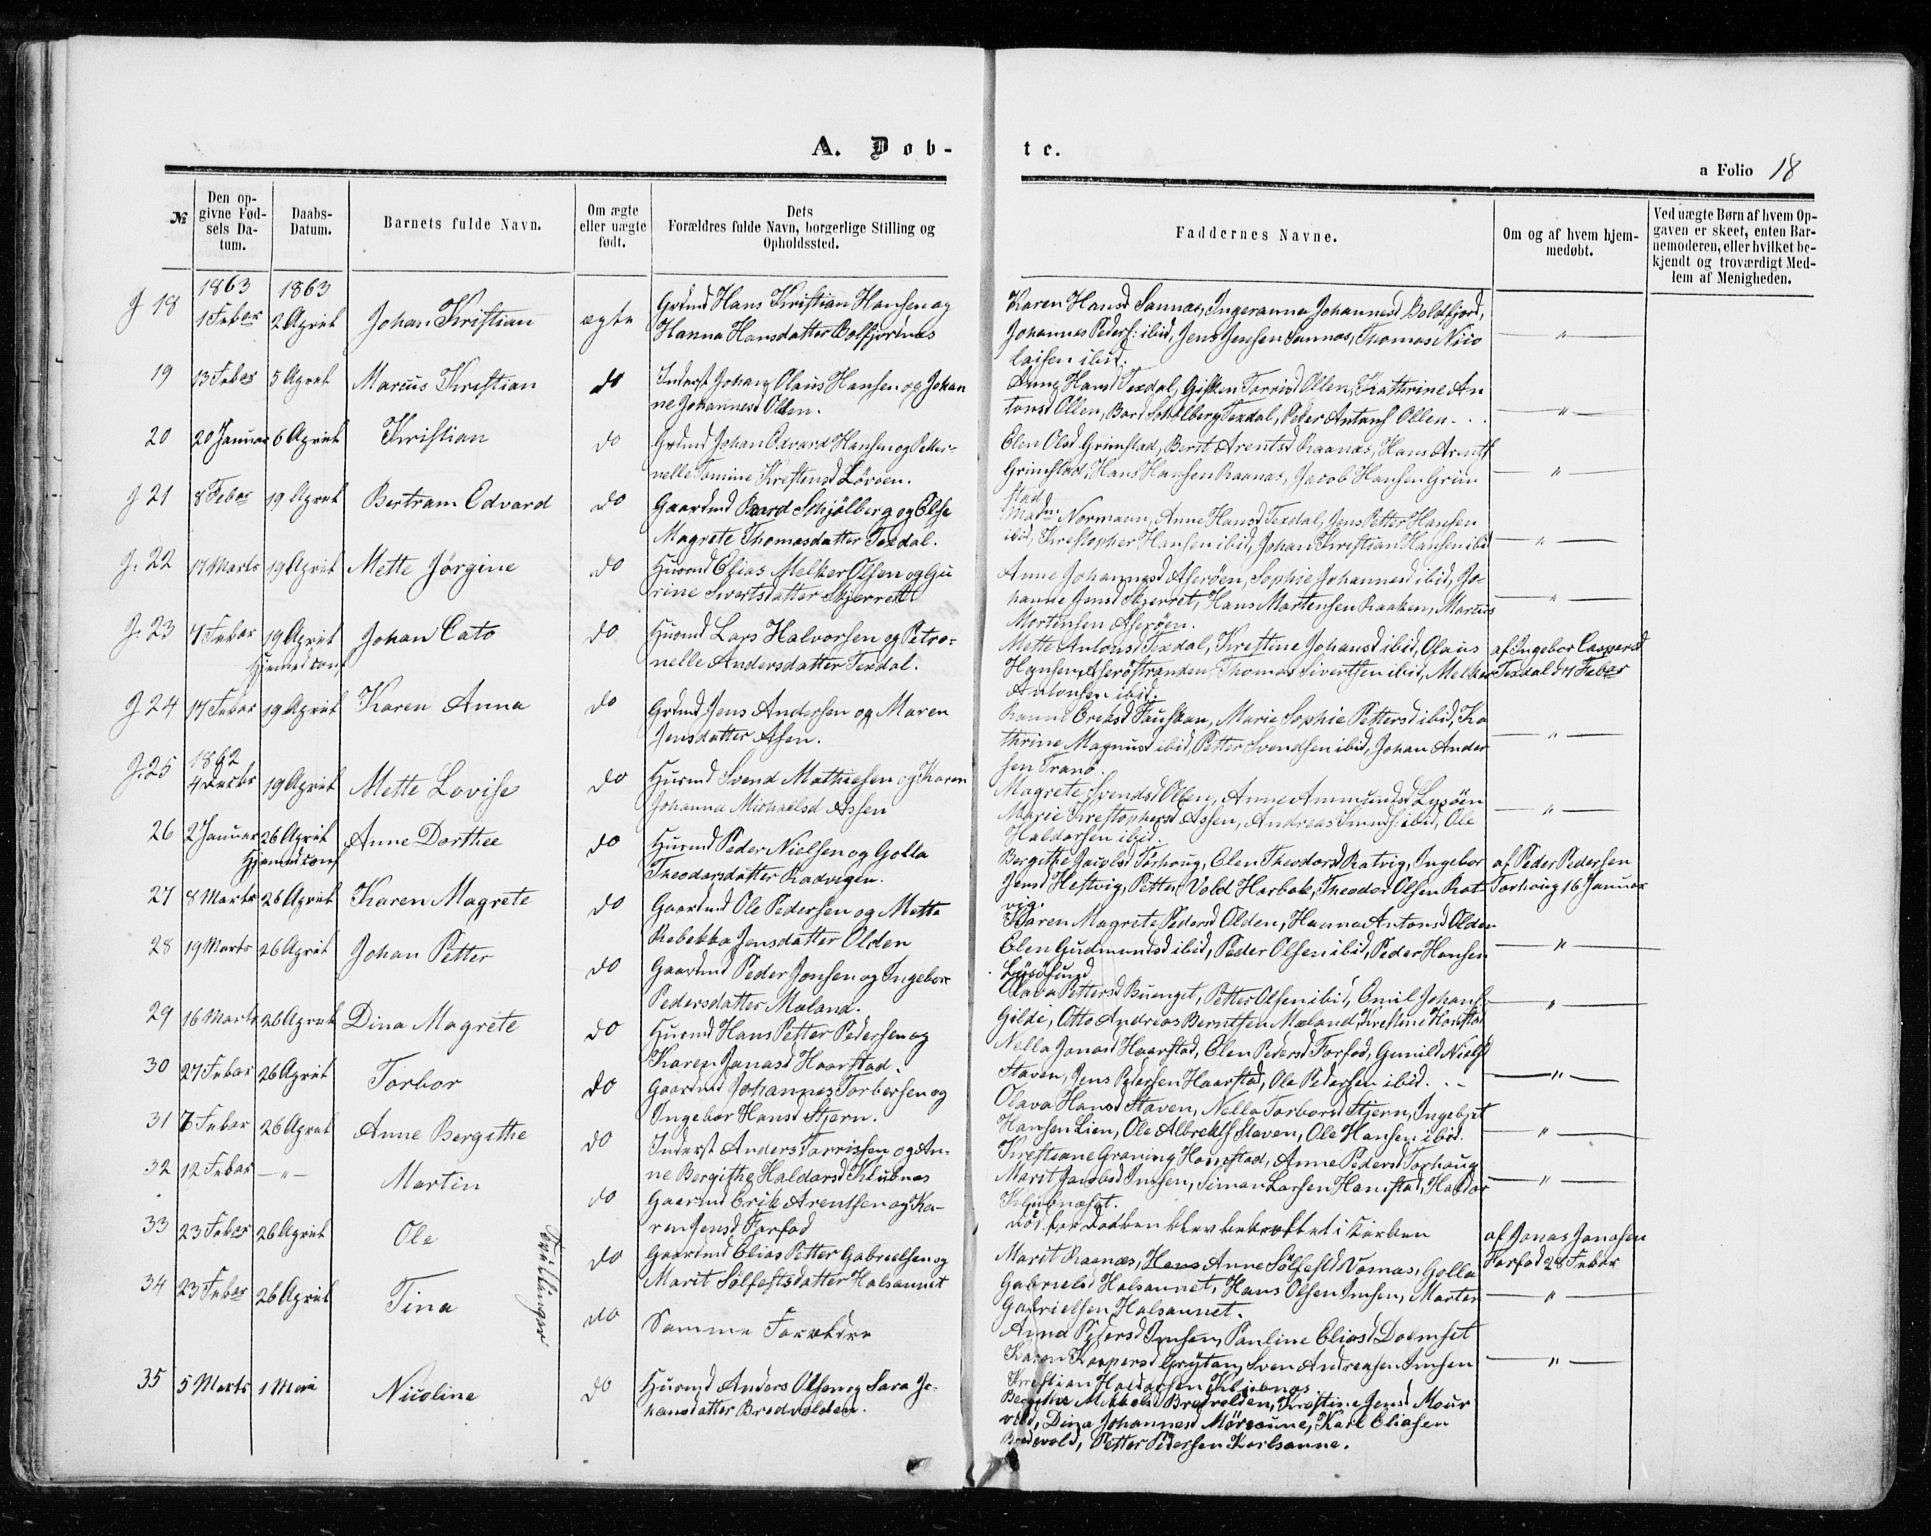 A. Döb-
te.
a Folio 18
№
Den opgivne Fødsels Datum.
Daabs-Datum.
Barnets fulde Navn.
Om ægte eller uægte født.
Dets Forældres fulde Navn, borgerlige Stilling og Opholdssted.
Faddernes Navne.
Om og af hvem hjemmedøbt.
Ved uægte Børn af hvem Opgaven er skeet, enten Barnemoderen, eller hvilket bekjendt og troværdigt Medlem af Menigheden.
1863 1863
J 18 1 Febar 2 April Johan Kristian ægte Grdmd Hans Kristian Hansen og
Hanna Hansdatter Bolfjortnæs
Karen Hansd Sannæs, Ingeranna Johannesd Boldfjord,
Johannes Peders: ibid, Jens Jensen Sannæs, Thomas Nico
laisen ibid. "
19 13 Febar 5 April Marcus Kristian do Inderst Johan Olaus Hansen og Johan
ne Johannesd Ollen.
Anne Hansd Texdal, Gisken Torrisd Ollen, Kathrine An
tonsd Ollen, Bard Schölberg Texdal, Peder Antons Ollen "
20 20 Januar 6 April Kristian do Grdmd Johan Edvard Hansen og Petter-
nelle Tomine Kristensd Lörøen.
Elen Olsd Grimstad, Berit Arentsd Raanæs, Hans Arents
Grimstad, Hans Hansen Raanæs, Jacob Hansen Grim
stad "
J 21 8 Febar 19 April Bertram Edvard do Gaardmd Baard Schjölberg og Else
Magrete Thomasdatter Texdal.
Madm Normann, Anne Hansd Texdal, Jens Petter Hansen
ibid, Kristopher Hansen ibid, Johan Kristian Hansen ibid "
J. 22 17 Marts 19 April Mette Jørgine do Husmd Elias Melker Olsen og Gu
rine Sivertsdatter Skjerrett
Anne Johannesd Aserøen, Sophie Johannesd ibid, Jo-
hanne Jensd Skjerret, Hans Martensen Raaken, Marcus
Mortensen Aserøen. "
J. 23 4 Febar 19 April Johan Cato do Husmd Lars Halvorsen og Petro-
Hjemed conf nelle Andersdatter Texdal.
Mette Antonsd Texdal, Kristine Johansd ibid, Olaus
Hansen Aserøstranden, Thomas Sivertsen ibid, Melker
Antonsen ibid.
af Ingebor Caspersd
Texdal d 4 Febar
J 24 14 Febar 19 April Karen Anna do Grdmd Jens Andersen og Maren
Jensdatter Asen.
Hanne Eriksd Fauskan, Marie Sophie Pettersd ibid, Ka
thrine Magnusd ibid, Petter Svendsen ibid, Johan Ander
sen Tranø. "
1862
J. 25 4 Decbr 19 April Mette Lovise do Husmd Svend Mathiesen og Karen
Johanna Michaelsd Assen
Magrete Svendsd Ollen, Anne Ammundsd Lysøen
Marie Kristophersd Assen, Andreas ibid, Ole
Haldorsen ibid. "
26 2 Januar 26 April Anne Dorthee do Husmd Peder Nielsen og Golla
Hjemed conf Theodorsdatter Radvigen.
Bergithe Jacobsd Torhoug, Elen Theodorsd Ratvig, Ingebor
Jensd Hestvig, Petter Vold Harbak, Theodor Olsen Rat
vig.
af Peder Pedersen
Torhoug 16 Januar
27 8 Marts 26 April Karen Magrete do Gaardmd Ole Pedersen og Mette
Rebekka Jensdatter Olden
Karen Magrete Pedersd Olden, Hanna Antonsd Olden
Elen Gudmundsd ibid, Peder Olsen ibid, Peder Hansen
Lysøsund "
28 19 Marts 26 April Johan Petter do Gaardmd Peder Jonsen og Ingebor
Pedersdatter Mæland.
Olava Pettersd Buenget, Petter Olsen ibid, Emil Johans
Gilde, Otto Andreas Berntsen Mæland, Kristine Hanstad "
29 16 Marts 26 April Dina Magrete do Husmd Hans Petter Pedersen og
Karen Jonasd Haarstad.
Nella Jonasd Haarstad, Elen Pedersd Forfod, Gunild Nielsd
Staven, Jens Pedersen Haarstad, Ole Pedersen ibid. "
30 27 Febar 26 April Torber do Gaardmd Johannes Torbersen og
Ingebor Hansd Stjern.
Olava Hansd Staven, Nella Torbersd Stjern, Ingebret
Hansen Lien, Ole Albrekts Staven, Ole Hansen ibid. "
31 7 Febar 26 April Anne Bergithe do Inderst Anders Torrissen og An-
ne Bergithe Haldorsd Klubnæs
Kristiane Graning Hamstad, Anne Pedersd Torhoug
Marit Jacobsd Imsen, Simon Larsen Hamstad, Haldor
Kljubnæset. "
32 12 Febar —"— Martin do Gaardmd Erik Arentsen og Ka-
ren Jensd Forfod
Død før Daaben blev bekræftet i Kirken
af Jonas Jonasen
Forfod 28 Febar
33 23 Febar 26 April Ole do Gaardmd Elias Petter Gabrielsen og
Marit Sölfestsdatter Halsaunet
Tvillinger
Marit Raanæs, Anne Sölfestd Vomas, Golla
Gabrielsd Halsaunet, Hans Olsen Imsen, Morten
Gabrielsen Halsaunet. "
34 23 Febar 26 April Tina do Samme Forældre
Anna Pedersd Imsen, Pauline Eliasd Doemset
Karen Kaspersd Gryten, Sven Andreasen Imsen
Kristian Haldorsen Kljubnæs. "
35 5 Marts 1 Mai Nicoline do Husmd Anders Olsen og Sara Jo-
hansdatter Bredvolden.
Bergithe Mikkelsd Bredvolden, Kristine Jensd Mour
vold, Dina Johannesd Mørsaune, Karl Eliasen
Bredvold, Petter Pedersen Karlsaune.